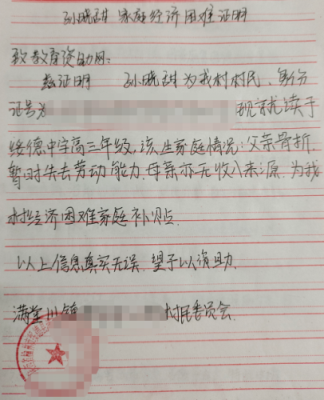 孙晓甜 家庭经济困难证明
致教育资助网:
兹证明 孙晓甜为我村村民, 身份
证号为 现就读于
绥德中学高三年级, 该生家庭情况: 父亲骨折,
暂时失去劳动能力, 母亲亦无收入来源, 为我
村经济困难家庭补贴.
以上信息真实无误, 望予以资助.
满堂川镇 村民委员会.